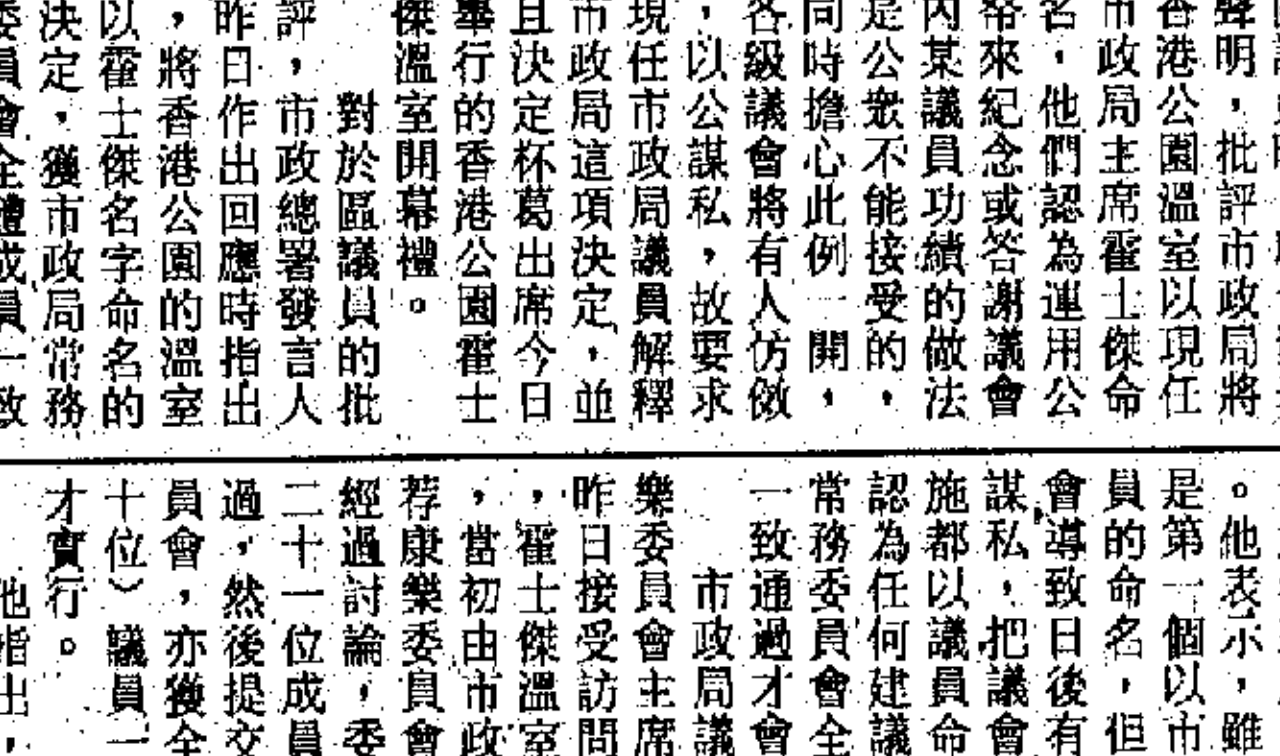 聲明，批評市政局將
香港公園溫室以現任
市政局主席霍士傑命
名，他們認為運用公
帑來紀念或答謝議會
內某議員功績的做法
是公眾不能接受的，
同時擔心此例一開，
各級議會將有人仿傚
，以公謀私，故要求
現任市政局議員解釋
市政局這項決定，並
且決定杯葛出席今日
舉行的香港公園霍士
傑溫室開幕禮。
對於區議員的批
評，市政總署發言人
昨日作出回應時指出
，將香港公園的溫室
以霍士傑名字命名的
決定，獲市政局常務
委員會全體成員一致
。他表示，雖
是第一個以市
員的命名，但
會導致日後有
謀私，把議會
施都以議員命
認為任何建議
常務委員會全
一致通過才會
市政局議
樂委員會主席
昨日接受訪問
，霍士傑溫室
，當初由市政
荐康樂委員會
經過討論，委
二十一位成員
過，然後提交
員會，亦獲全
十位）議員一
才實行。
他指出，